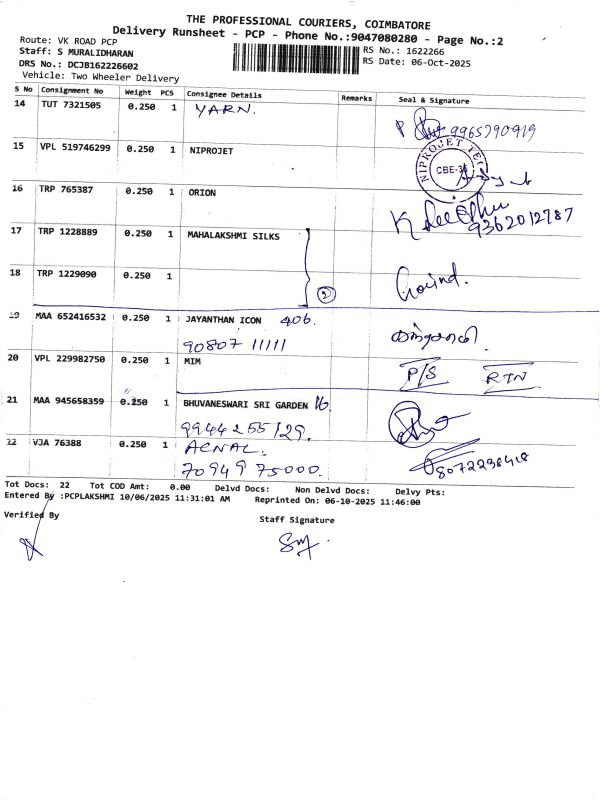 THE PROFESSIONAL COURIERS, COIMBATORE
Delivery Runsheet - PCP - Phone No.:9047080280 - Page No.:2
Route: VK ROAD PCP
Staff: S MURALIDHARAN
RS No.: 1622266
DRS No.: DCJB162226602
RS Date: 06-Oct-2025
Vehicle: Two Wheeler Delivery
S No Consignment No Weight PCS Consignee Details Remarks Seal & Signature
14 TUT 7321505 0.250 1 YARN.
9965790919
15 VPL 519746299 0.250 1 NIPROJET
NIPROJET
CBE-
16 TRP 765387 0.250 1 ORION
9362012787
17 TRP 1228889 0.250 1 MAHALAKSHMI SILKS
18 TRP 1229090 0.250 1
2
Govind.
19 MAA 652416532 0.250 1 JAYANTHAN ICON 406.
90807 11111
20 VPL 229982750 0.250 1 MIM
P/S RTN
21 MAA 945658359 0.250 1 BHUVANESWARI SRI GARDEN
9944255129.
22 VJA 76388 0.250 1 ACNAL.
70949 75000.
8072298418
Tot Docs: 22 Tot COD Amt: 0.00 Delvd Docs: Non Delvd Docs: Delvy Pts:
Entered By :PCPLAKSHMI 10/06/2025 11:31:01 AM Reprinted On: 06-10-2025 11:46:00
Verified By
Staff Signature